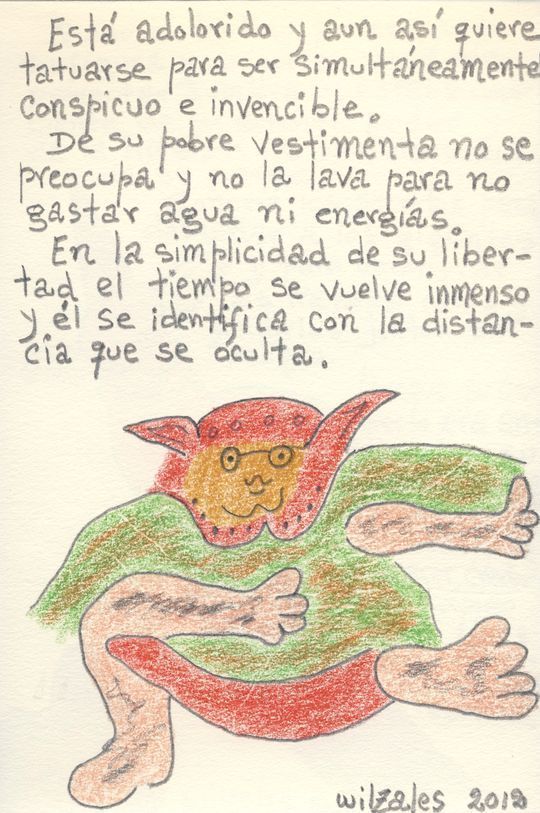 Está adolorido y aun así quiere
tatuarse para ser simultáneamente
conspicuo e invencible.
De su pobre vestimenta no se
preocupa y no la lava para no
gastar agua ni energías.
En la simplicidad de su liber-
tad el tiempo se vuelve inmenso
y él se identifica con la distan-
cia que se oculta.
wilzales 2012